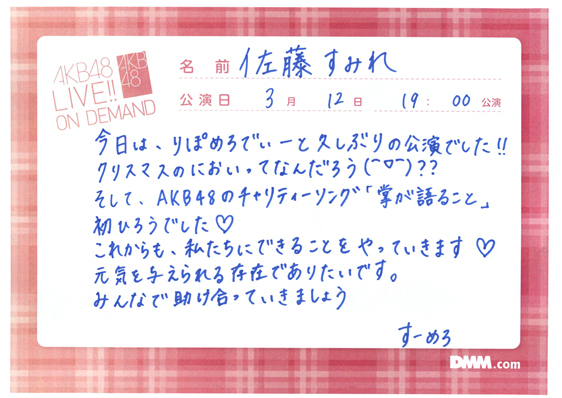 AKB48
LIVE!!
ON DEMAND
AKB
48
名前 佐藤 すみれ
公演日 3月 12日 19:00 公演
今日は、りぽめろでぃーと久しぶりの公演でした!!
クリスマスのにおいってなんだろう(⌒▽⌒)??
そして、AKB48のチャリティーソング「掌が語ること」
初ひろうでした♡
これからも、私たちにできることをやっていきます♡
元気を与えられる存在でありたいです。
みんなで助け合っていきましょう
すーめろ
DMM.com